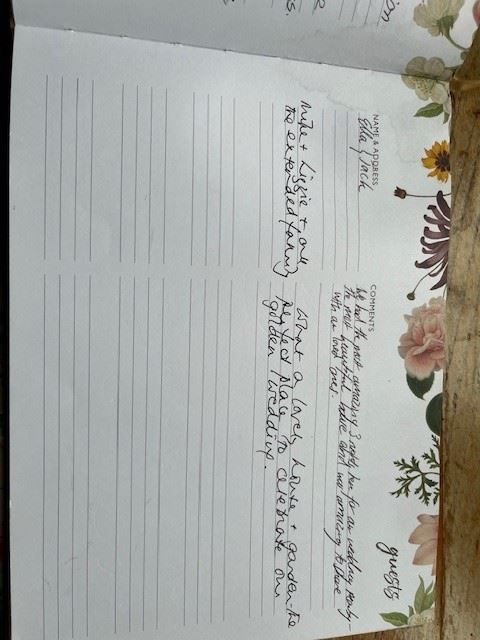 guests
NAME & ADDRESS
COMMENTS
Ella & Jack
We had the most amazing 3 nights here for our wedding party -
the most beautiful house and was amazing to share
with our loved ones.
Mike + Lizzie + our
the extended family
What a lovely house + garden - the
perfect place to celebrate our
golden wedding.